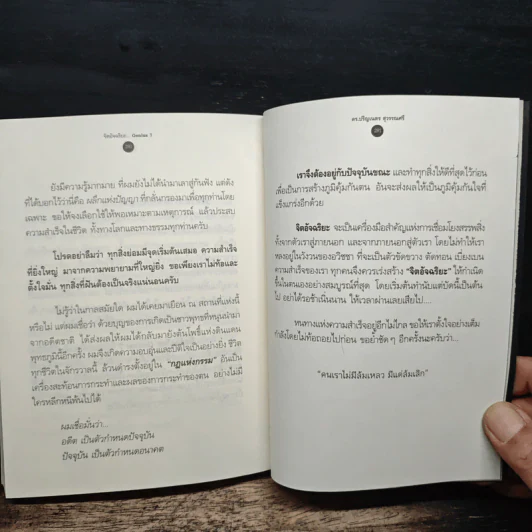 จิตอัจฉริยะ... Genius 1
ยังมีความรู้มากมาย ที่ผมยังไม่ได้นำมาเล่าสู่กันฟัง แต่ดัง
ที่ได้บอกไว้ว่านี่คือ ผลึกแห่งปัญญา ที่กลั่นกรองมาเพื่อทุกท่านโดย
เฉพาะ ขอให้จงเลือกใช้ให้พอเหมาะตามเหตุการณ์ แล้วประสบ
ความสำเร็จในชีวิต ทั้งทางโลกและทางธรรมทุกท่านครับ
โปรดอย่าลืมว่า ทุกสิ่งย่อมมีจุดเริ่มต้นเสมอ ความสำเร็จ
ที่ยิ่งใหญ่ มาจากความพยายามที่ใหญ่ยิ่ง ขอเพียงเราไม่ท้อและ
ตั้งใจมั่น ทุกสิ่งที่ฝันต้องเป็นจริงแน่นอนครับ
ไม่รู้ว่าในกาลสมัยใด ผมได้เคยมาเยือน ณ สถานที่แห่งนี้
หรือไม่ แต่ผมเชื่อว่า ด้วยบุญของการเกิดเป็นชาวพุทธที่หนุนนำมา
จากอดีตชาติ ได้ส่งผลให้ผมได้กลับมายังต้นโพธิ์แห่งดินแดน
พุทธภูมินี้อีกครั้ง ผมจึงเกิดความอบอุ่นและปีติใจเป็นอย่างยิ่ง ชีวิต
ทุกชีวิตในจักรวาลนี้ ล้วนดำรงตั้งอยู่ใน "กฎแห่งกรรม" อันเป็น
เครื่องสะท้อนการกระทำและผลของการกระทำของตน อย่างไม่มี
ใครหลีกหนีพ้นไปได้
ผมเชื่อมั่นว่า...
อดีต เป็นตัวกำหนดปัจจุบัน
ปัจจุบัน เป็นตัวกำหนดอนาคต
ดร.ปริญเนตร สุวรรณศรี
เราจึงต้องอยู่กับปัจจุบันขณะ และทำทุกสิ่งให้ดีที่สุดไว้ก่อน
เพื่อเป็นการสร้างภูมิคุ้มกันตน อันจะส่งผลให้เป็นภูมิคุ้มกันใจที่
แข็งแกร่งอีกด้วย
จิตอัจฉริยะ จะเป็นเครื่องมือสำคัญแห่งการเชื่อมโยงสรรพสิ่ง
ทั้งจากตัวเราสู่ภายนอก และจากภายนอกสู่ตัวเรา โดยไม่ทำให้เรา
หลงอยู่ในวังวนของอวิชชา ที่จะเป็นตัวขัดขวาง ตัดทอน เบี่ยงเบน
ความสำเร็จของเรา ทุกคนจึงควรเร่งสร้าง "จิตอัจฉริยะ" ให้กำเนิด
ขึ้นในตนเองอย่างสมบูรณ์ที่สุด โดยเริ่มต้นทำนับแต่บัดนี้เป็นต้น
ไป อย่าได้รอช้าเนิ่นนาน ให้เวลาผ่านเลยเสียไป....
หนทางแห่งความสำเร็จอยู่อีกไม่ไกล ขอให้เราตั้งใจอย่างเต็ม
กำลังโดยไม่ท้อถอยไปก่อน ขอย้ำชัด ๆ อีกครั้งนะครับว่า...
"คนเราไม่มีล้มเหลว มีแต่ล้มเลิก"